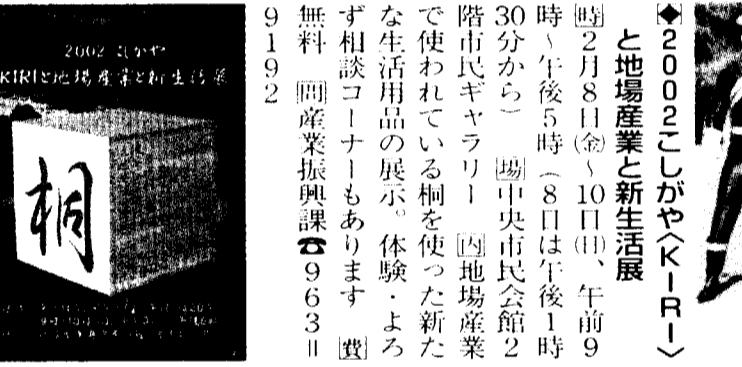 ◆2002こしがや〈KIRI〉
と地場産業と新生活展
時2月8日㈮～10日㈰、午前9
時～午後5時(8日は午後1時
30分から) 場中央市民会館2
階市民ギャラリー 内地場産業
で使われている桐を使った新た
な生活用品の展示。体験・よろ
ず相談コーナーもあります 費
無料 問産業振興課☎963=
9192
2002 こしがや
KIRIと地場産業と新生活展
桐